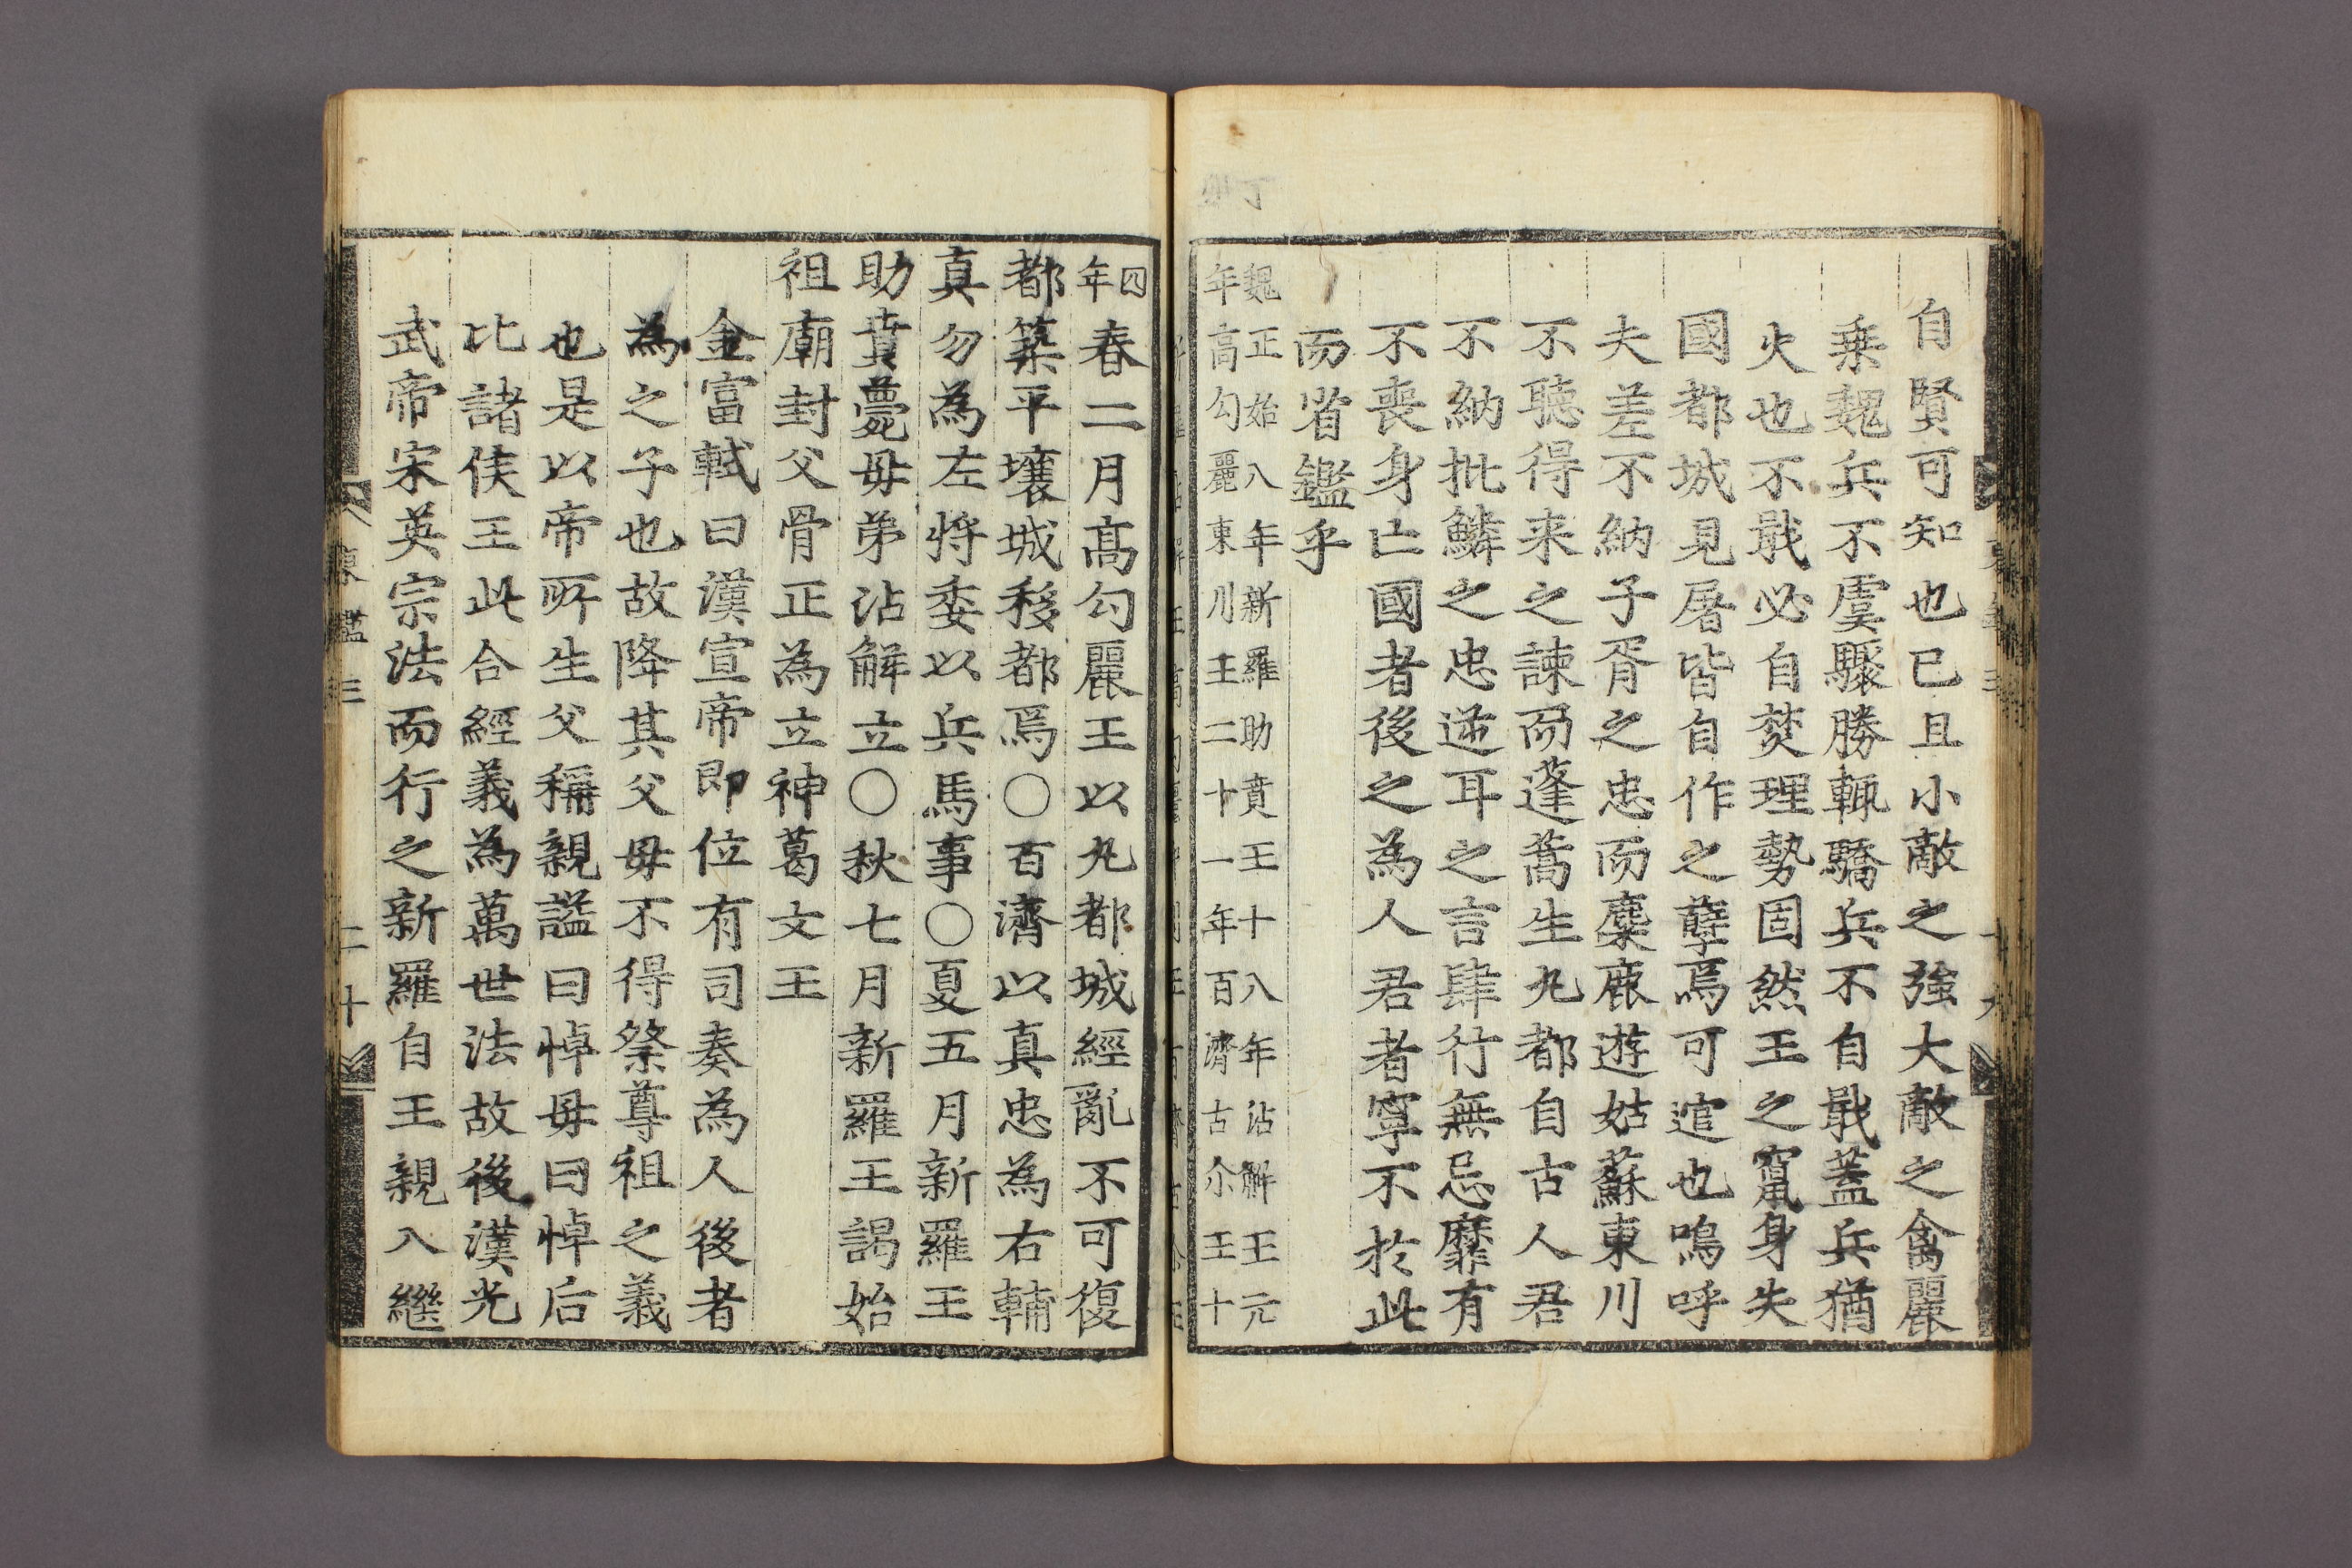 自賢可知也已且小敵之強大敵之禽麗
乗魏兵不虞驟勝輒驕兵不自戢蓋兵猶
火也不戢必自焚理勢固然王之竄身失
國都城見屠皆自作之孽焉可逭也嗚呼
夫差不納子胥之忠而麋鹿遊姑蘇東川
不聽得来之諫而蓬蒿生丸都自古人君
不納批鱗之忠逆耳之言肆行無忌靡有
不喪身亡國者後之為人君者寧不於此
而省鑑乎
丁卯
魏正始八年新羅助賁王十八年沾解王元
年高勾麗東川王二十一年百濟古尒王十
四
年
春二月高勾麗王以丸都城經亂不可復
都築平壤城移都焉〇百濟以真忠為右輔
真勿為左將委以兵馬事〇夏五月新羅王
助賁薨毋弟沾解立〇秋七月新羅王謁始
祖廟封父骨正為立神葛文王
金富軾曰漢宣帝即位有司奏為人後者
為之子也故降其父毋不得祭尊祖之義
也是以帝所生父稱親諡曰悼毋曰悼后
比諸侯王此合經義為萬世法故後漢光
武帝宋英宗法而行之新羅自王親入繼
東鑑三
二十